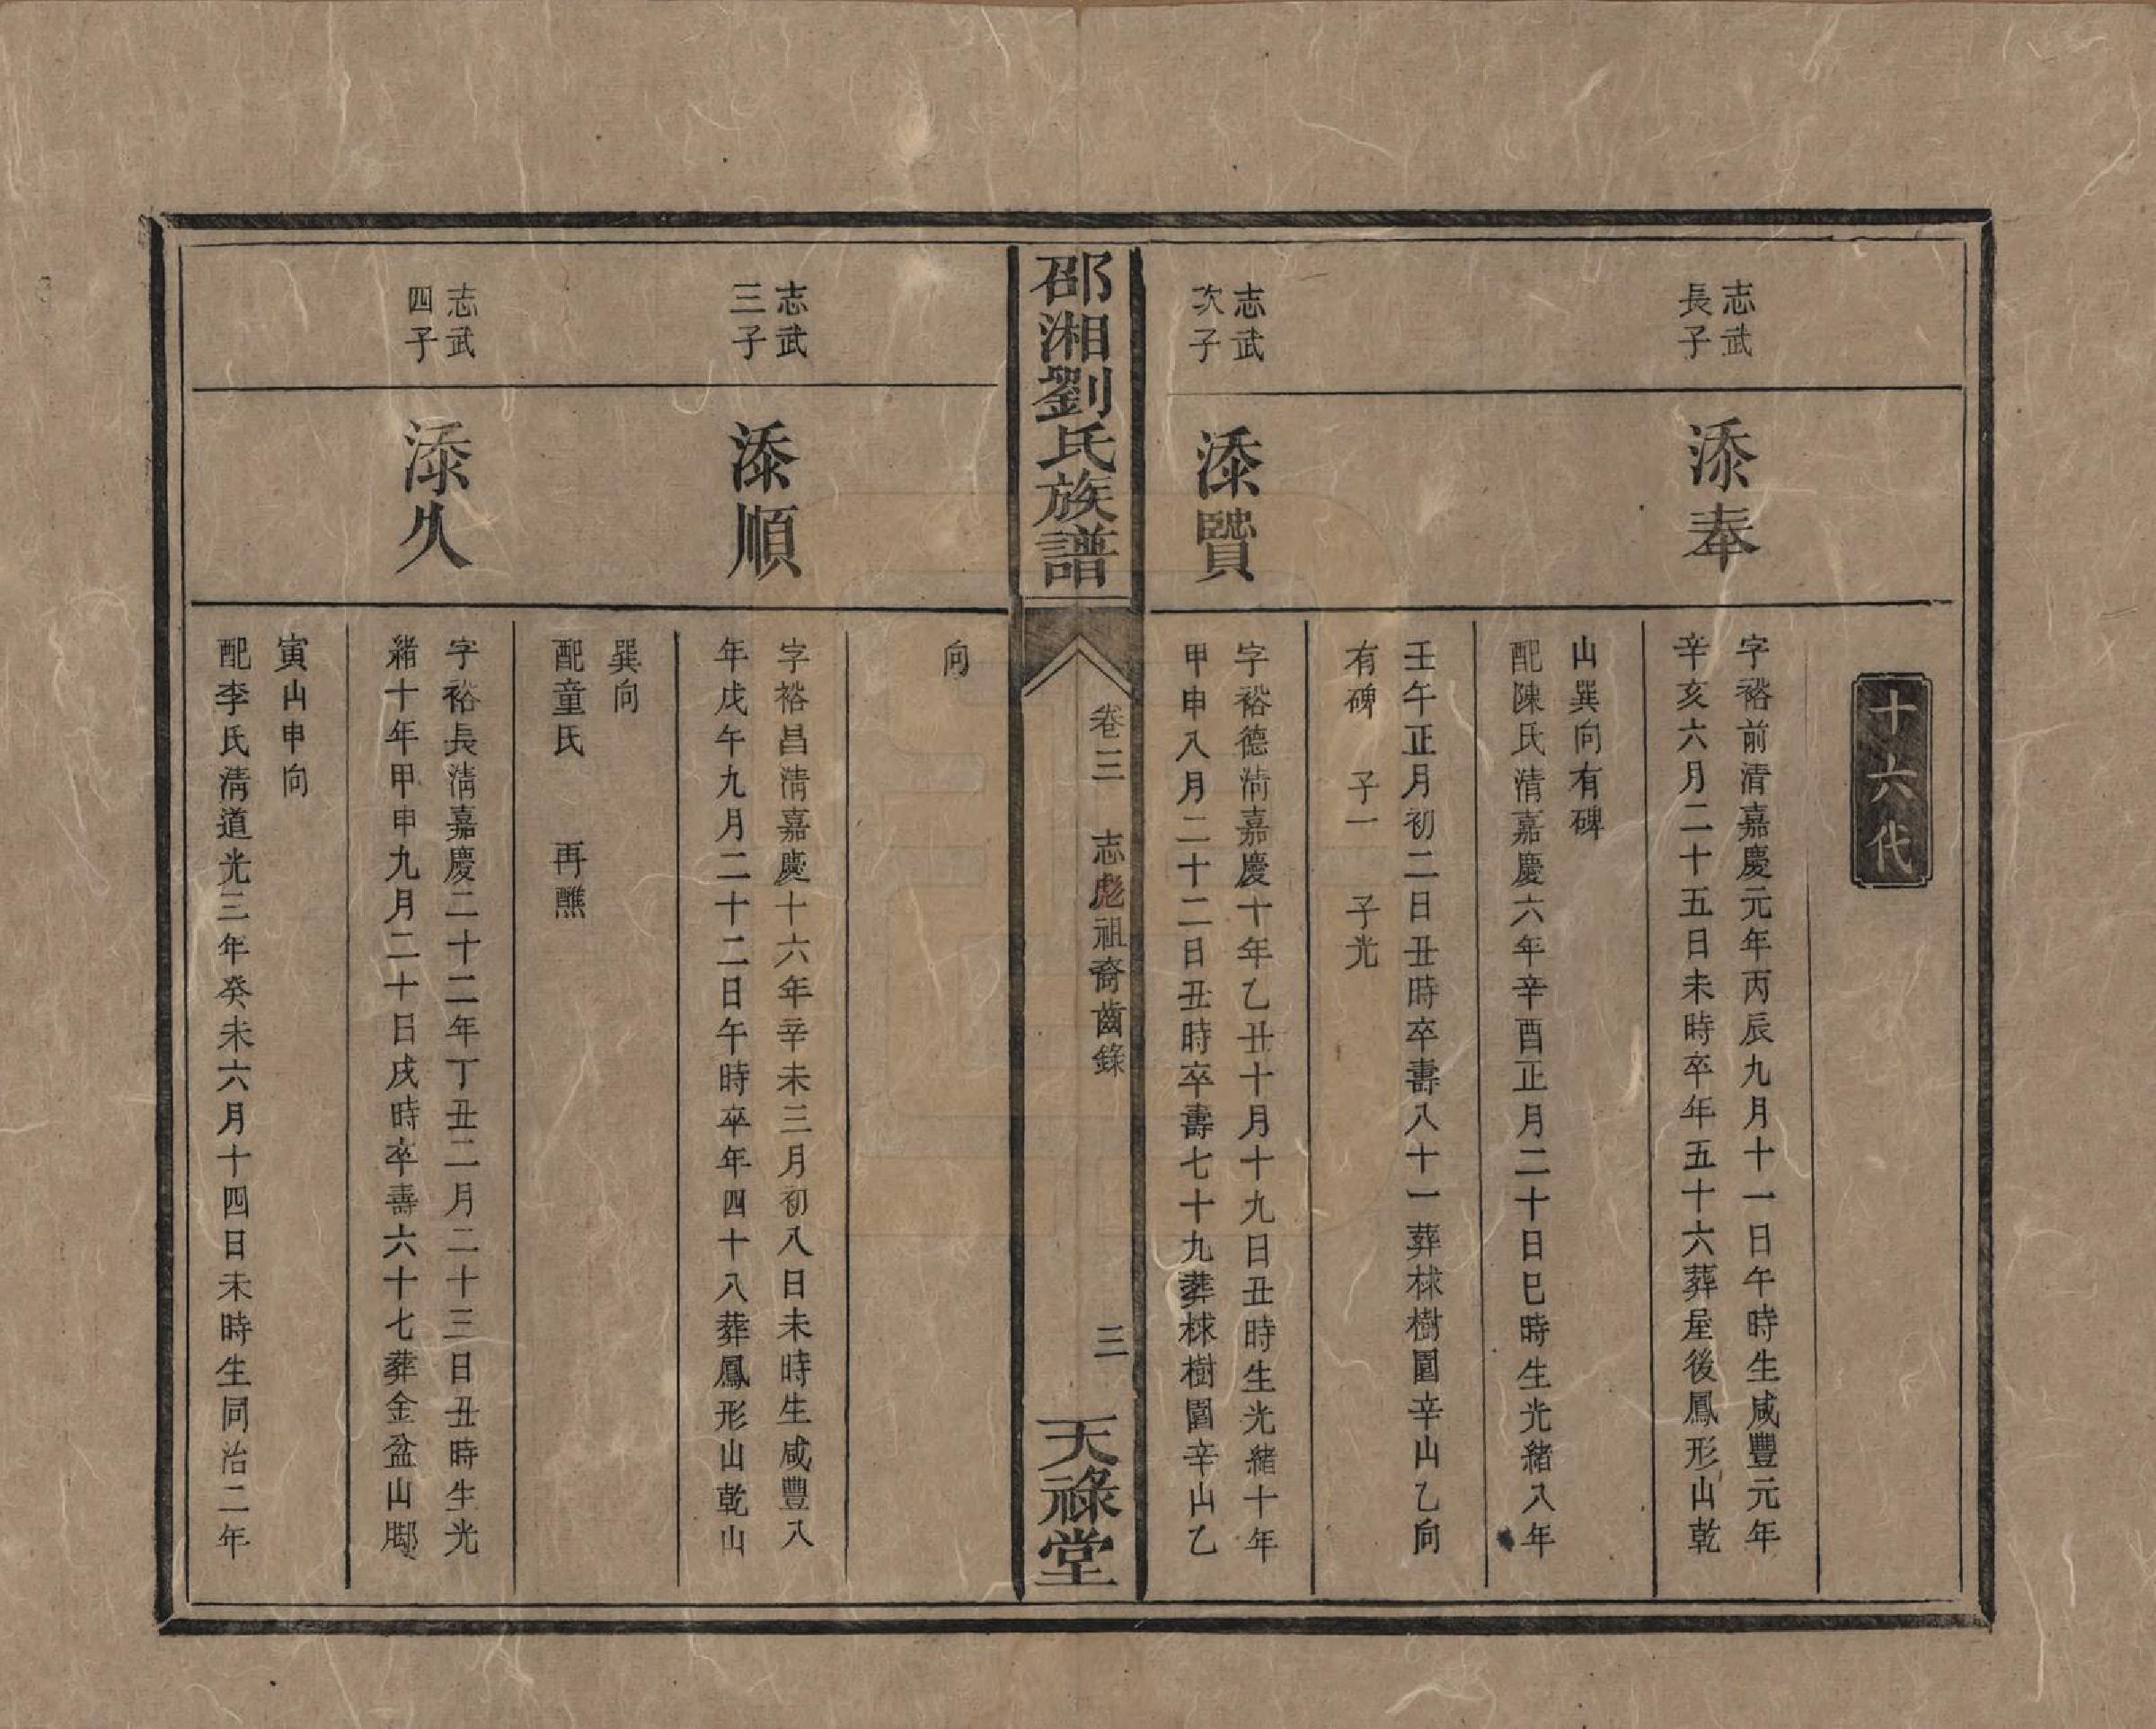 十六代
志武
長子
添奉
字裕前清嘉慶元年丙辰九月十一日午時生咸豐元年
辛亥六月二十五日未時卒年五十六葬屋後鳳形山乾
山巽向有碑
配陳氏清嘉慶六年辛酉正月二十日巳時生光緒八年
壬午正月初二日丑時卒壽八十一葬栐樹園辛山乙向
有碑 子一 子光
志武
次子
添贒
字裕德清嘉慶十年乙丑十月十九日丑時生光緒十年
甲申八月二十二日丑時卒壽七十九葬栐樹園辛山乙
邵湘劉氏族譜
卷三 志彪祖裔齒錄
三
天祿堂
向
志武
三子
添順
字裕昌清嘉慶十六年辛未三月初八日未時生咸豐八
年戊午九月二十二日午時卒年四十八葬鳳形山乾山
巽向
配童氏 再醮
志武
四子
添久
字裕長清嘉慶二十二年丁丑二月二十三日丑時生光
緒十年甲申九月二十日戌時卒壽六十七葬金盆山腳
寅山申向
配李氏清道光三年癸未六月十四日未時生同治二年